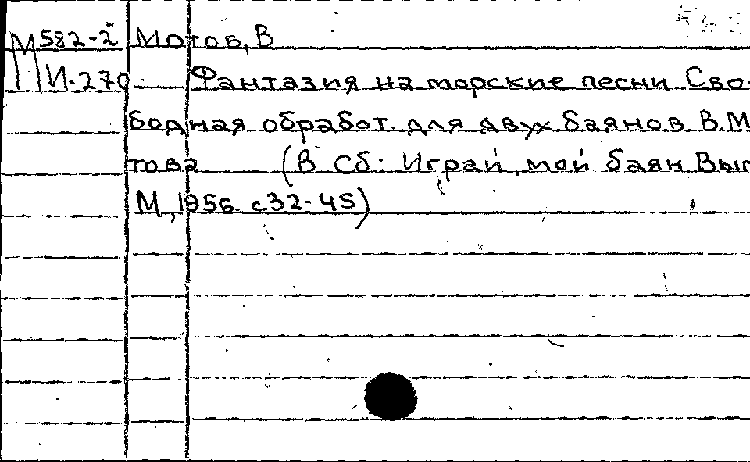 М582-2 Мотов, В
И-270 Фантазия на морские песни Сво-
бодная обработ. для двух баянов В.М
това (В сб: Играй, мой баян Вып
М, 1956 с32-45)